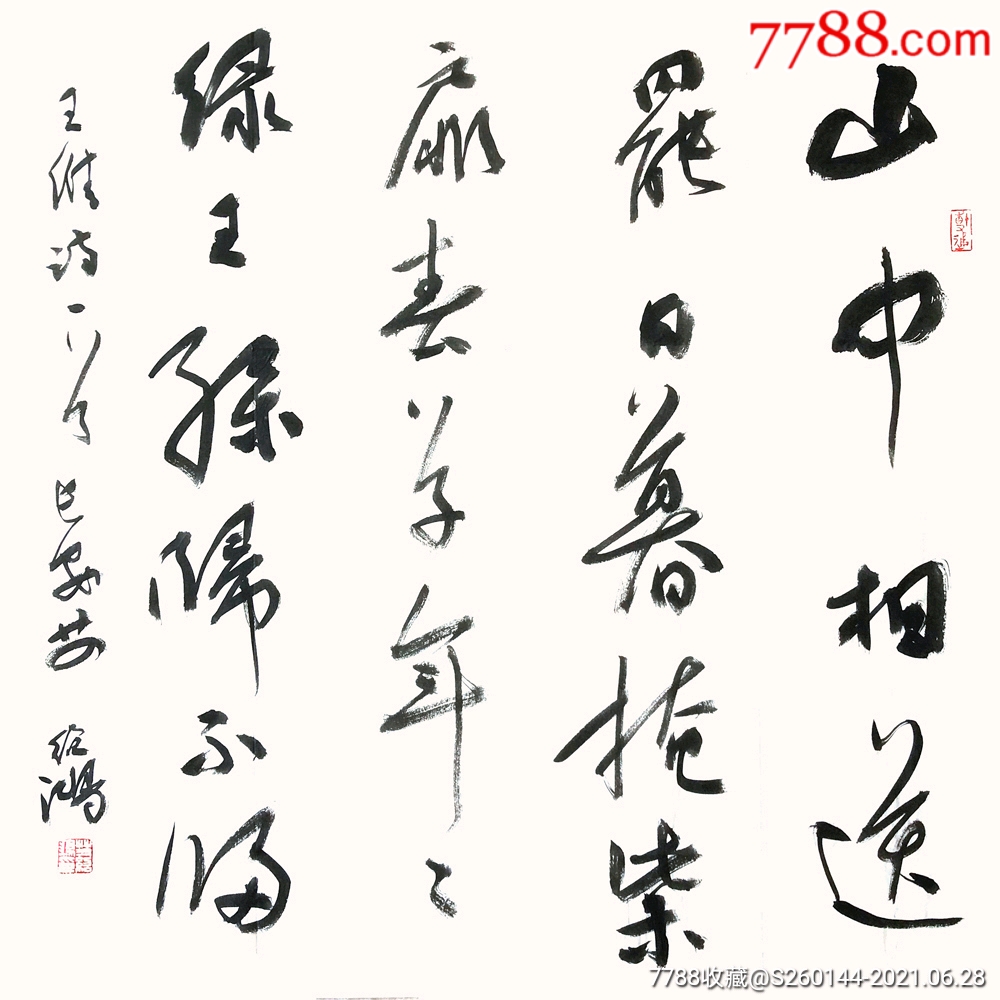 7788.com
山中相送
罷日暮掩柴
扉春草年〻
绿王孫歸不归
王维诗一首 鴻
7788收藏@S260144-2021.06.28